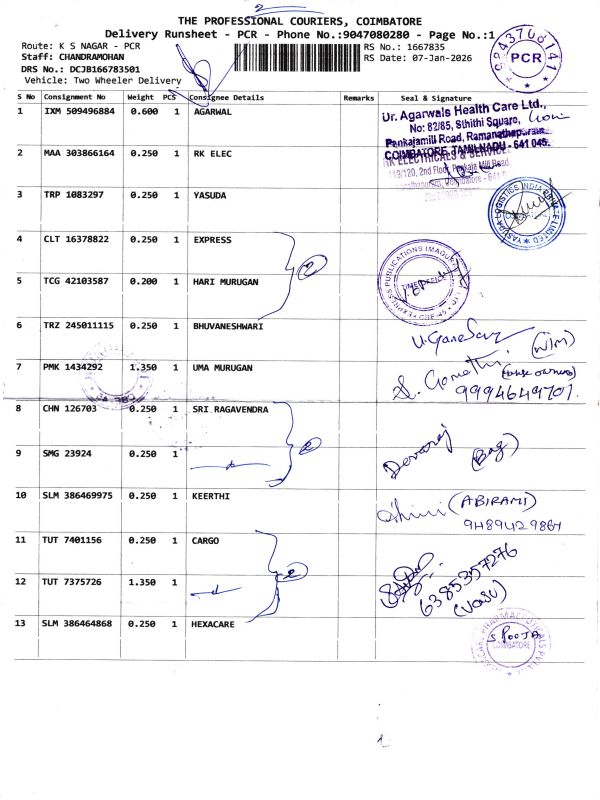 2
THE PROFESSIONAL COURIERS, COIMBATORE
Delivery Runsheet - PCR - Phone No.:9047080280 - Page No.:1
Route: K S NAGAR - PCR
RS No.: 1667835
Staff: CHANDRAMOHAN
RS Date: 07-Jan-2026
DRS No.: DCJB166783501
Vehicle: Two Wheeler Delivery
PCR
S No Consignment No Weight PCS Consignee Details Remarks Seal & Signature
1 IXM 509496884 0.600 1 AGARWAL
Dr. Agarwals Health Care Ltd.,
No: 82/85, Sthithi Square,
Pankajamill Road, Ramanathapuram,
COIMBATORE, TAMILNADU - 641 045.
2 MAA 303866164 0.250 1 RK ELEC
RK ELECTRICALS &
119/120, 2nd Floor, Pankaja Mill Road,
3 TRP 1083297 0.250 1 YASUDA
YASUDA LOGISTICS INDIA PRIVATE LIMITED
4 CLT 16378822 0.250 1 EXPRESS
EXPRESS PUBLICATIONS (MADURAI)
TIME OFFICE
CBE-45
5 TCG 42103587 0.200 1 HARI MURUGAN
6 TRZ 245011115 0.250 1 BHUVANESHWARI
7 PMK 1434292 1.350 1 UMA MURUGAN
9994649701
8 CHN 126703 0.250 1 SRI RAGAVENDRA
9 SMG 23924 0.250 1
Devaraj
10 SLM 386469975 0.250 1 KEERTHI
(ABIRAMI)
9489429867
11 TUT 7401156 0.250 1 CARGO
12 TUT 7375726 1.350 1
6385357276
(VASU)
13 SLM 386464868 0.250 1 HEXACARE
S. POOJA
COIMBATORE